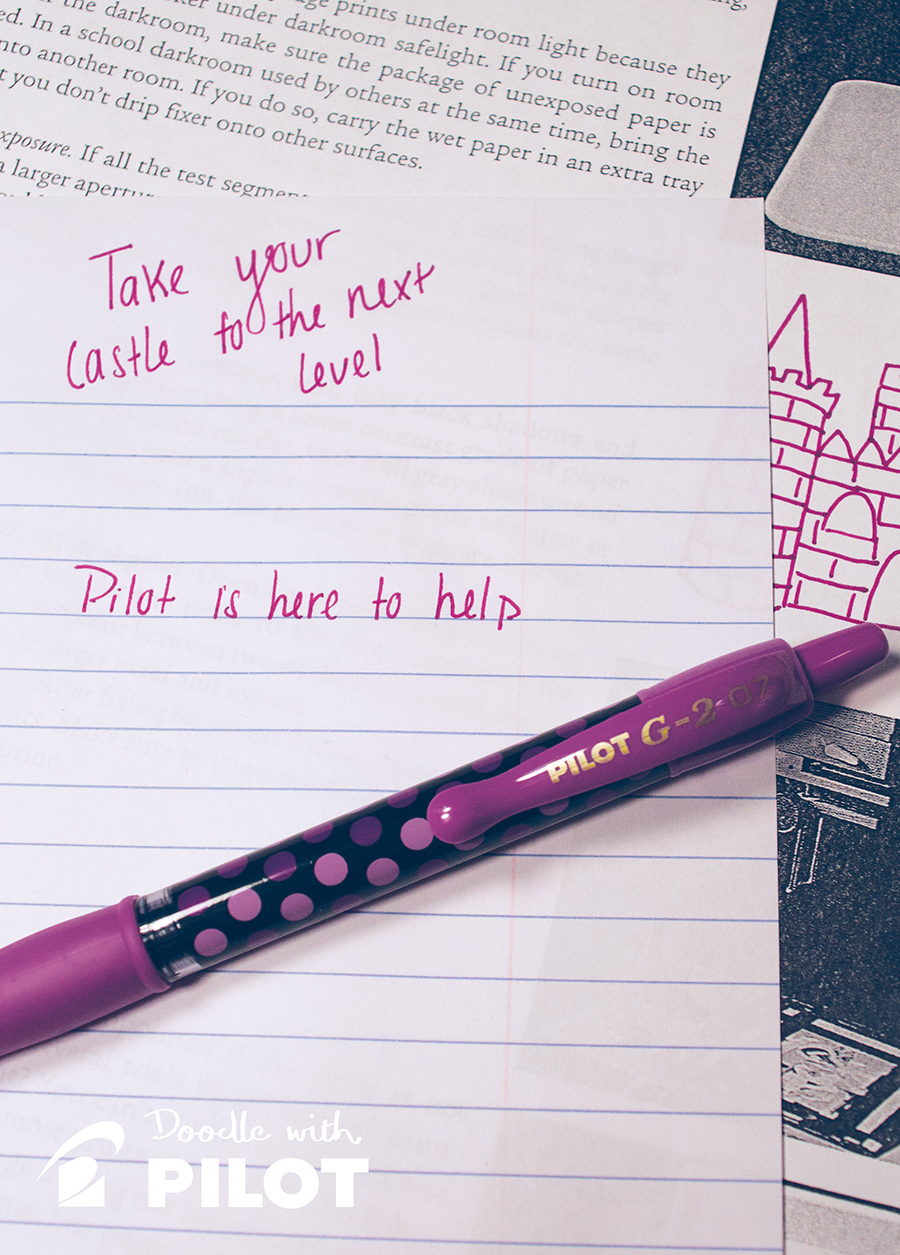 prints under room light because they
under darkroom safelight. If you turn on room
the darkroom, make sure the package of unexposed paper is
ed. In a school darkroom used by others at the same time, bring the
nto another room. If you do so, carry the wet paper in an extra tray
t you don't drip fixer onto other surfaces.
xposure. If all the test segment
a larger apertur
Take your
Castle to the next
level
Pilot is here to help
PILOT G-2 07
Doodle with
PILOT